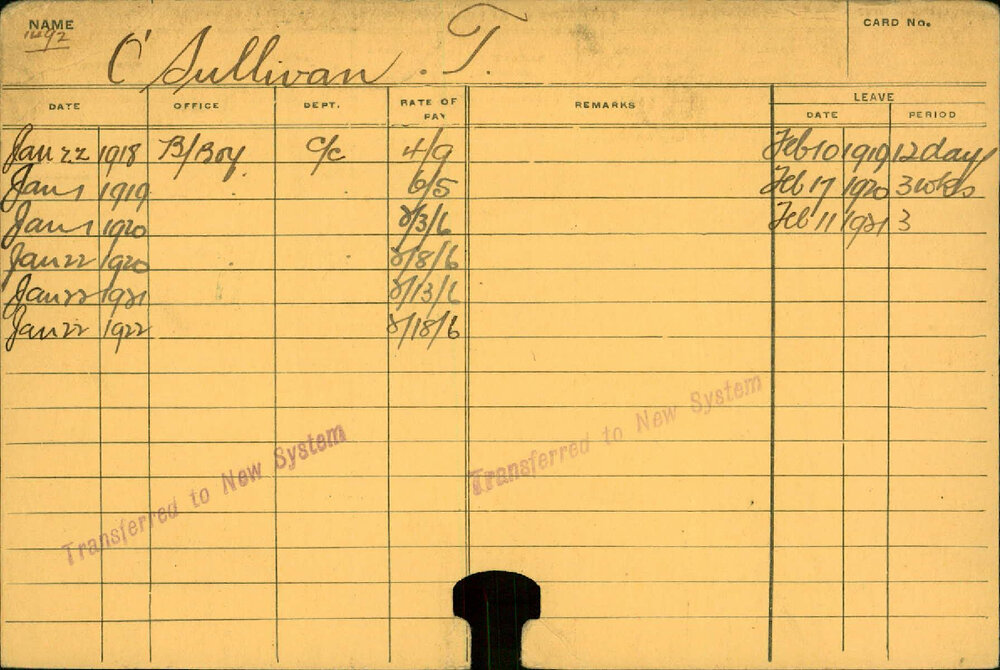 NAME
1492
O'Sullivan . T.
CARD No.
DATE OFFICE DEPT. RATE OF PAY REMARKS LEAVE
DATE PERIOD
Jan 22 1918 B/Boy C/C 4/9 Feb 10 1919 12 days
Jan 1 1919 6/5 Feb 17 1920 3 wks
Jan 1 1920 2/3/6 Feb 11 1921 3
Jan 22 1920 2/8/6
Jan 22 1921 2/13/6
Jan 22 1922 2/18/6
Transferred to New System
Transferred to New System